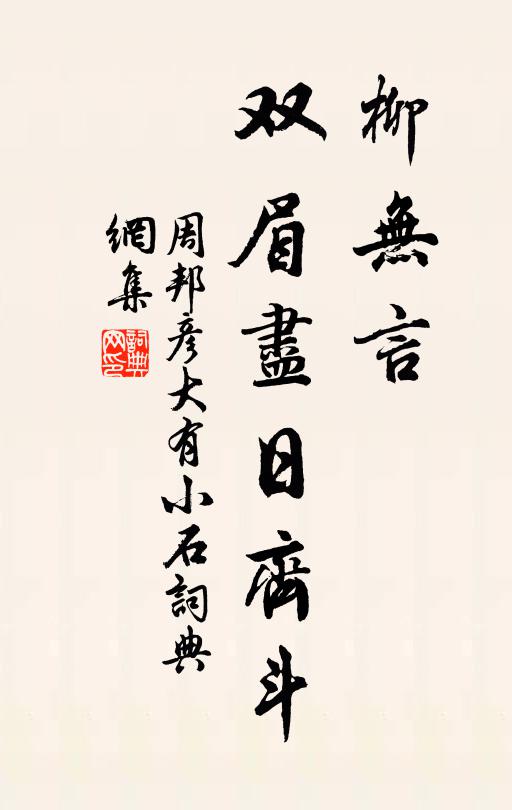 柳無言
双眉盡日齊斗
周邦彦大有小石詞典
網集
詞典
网印